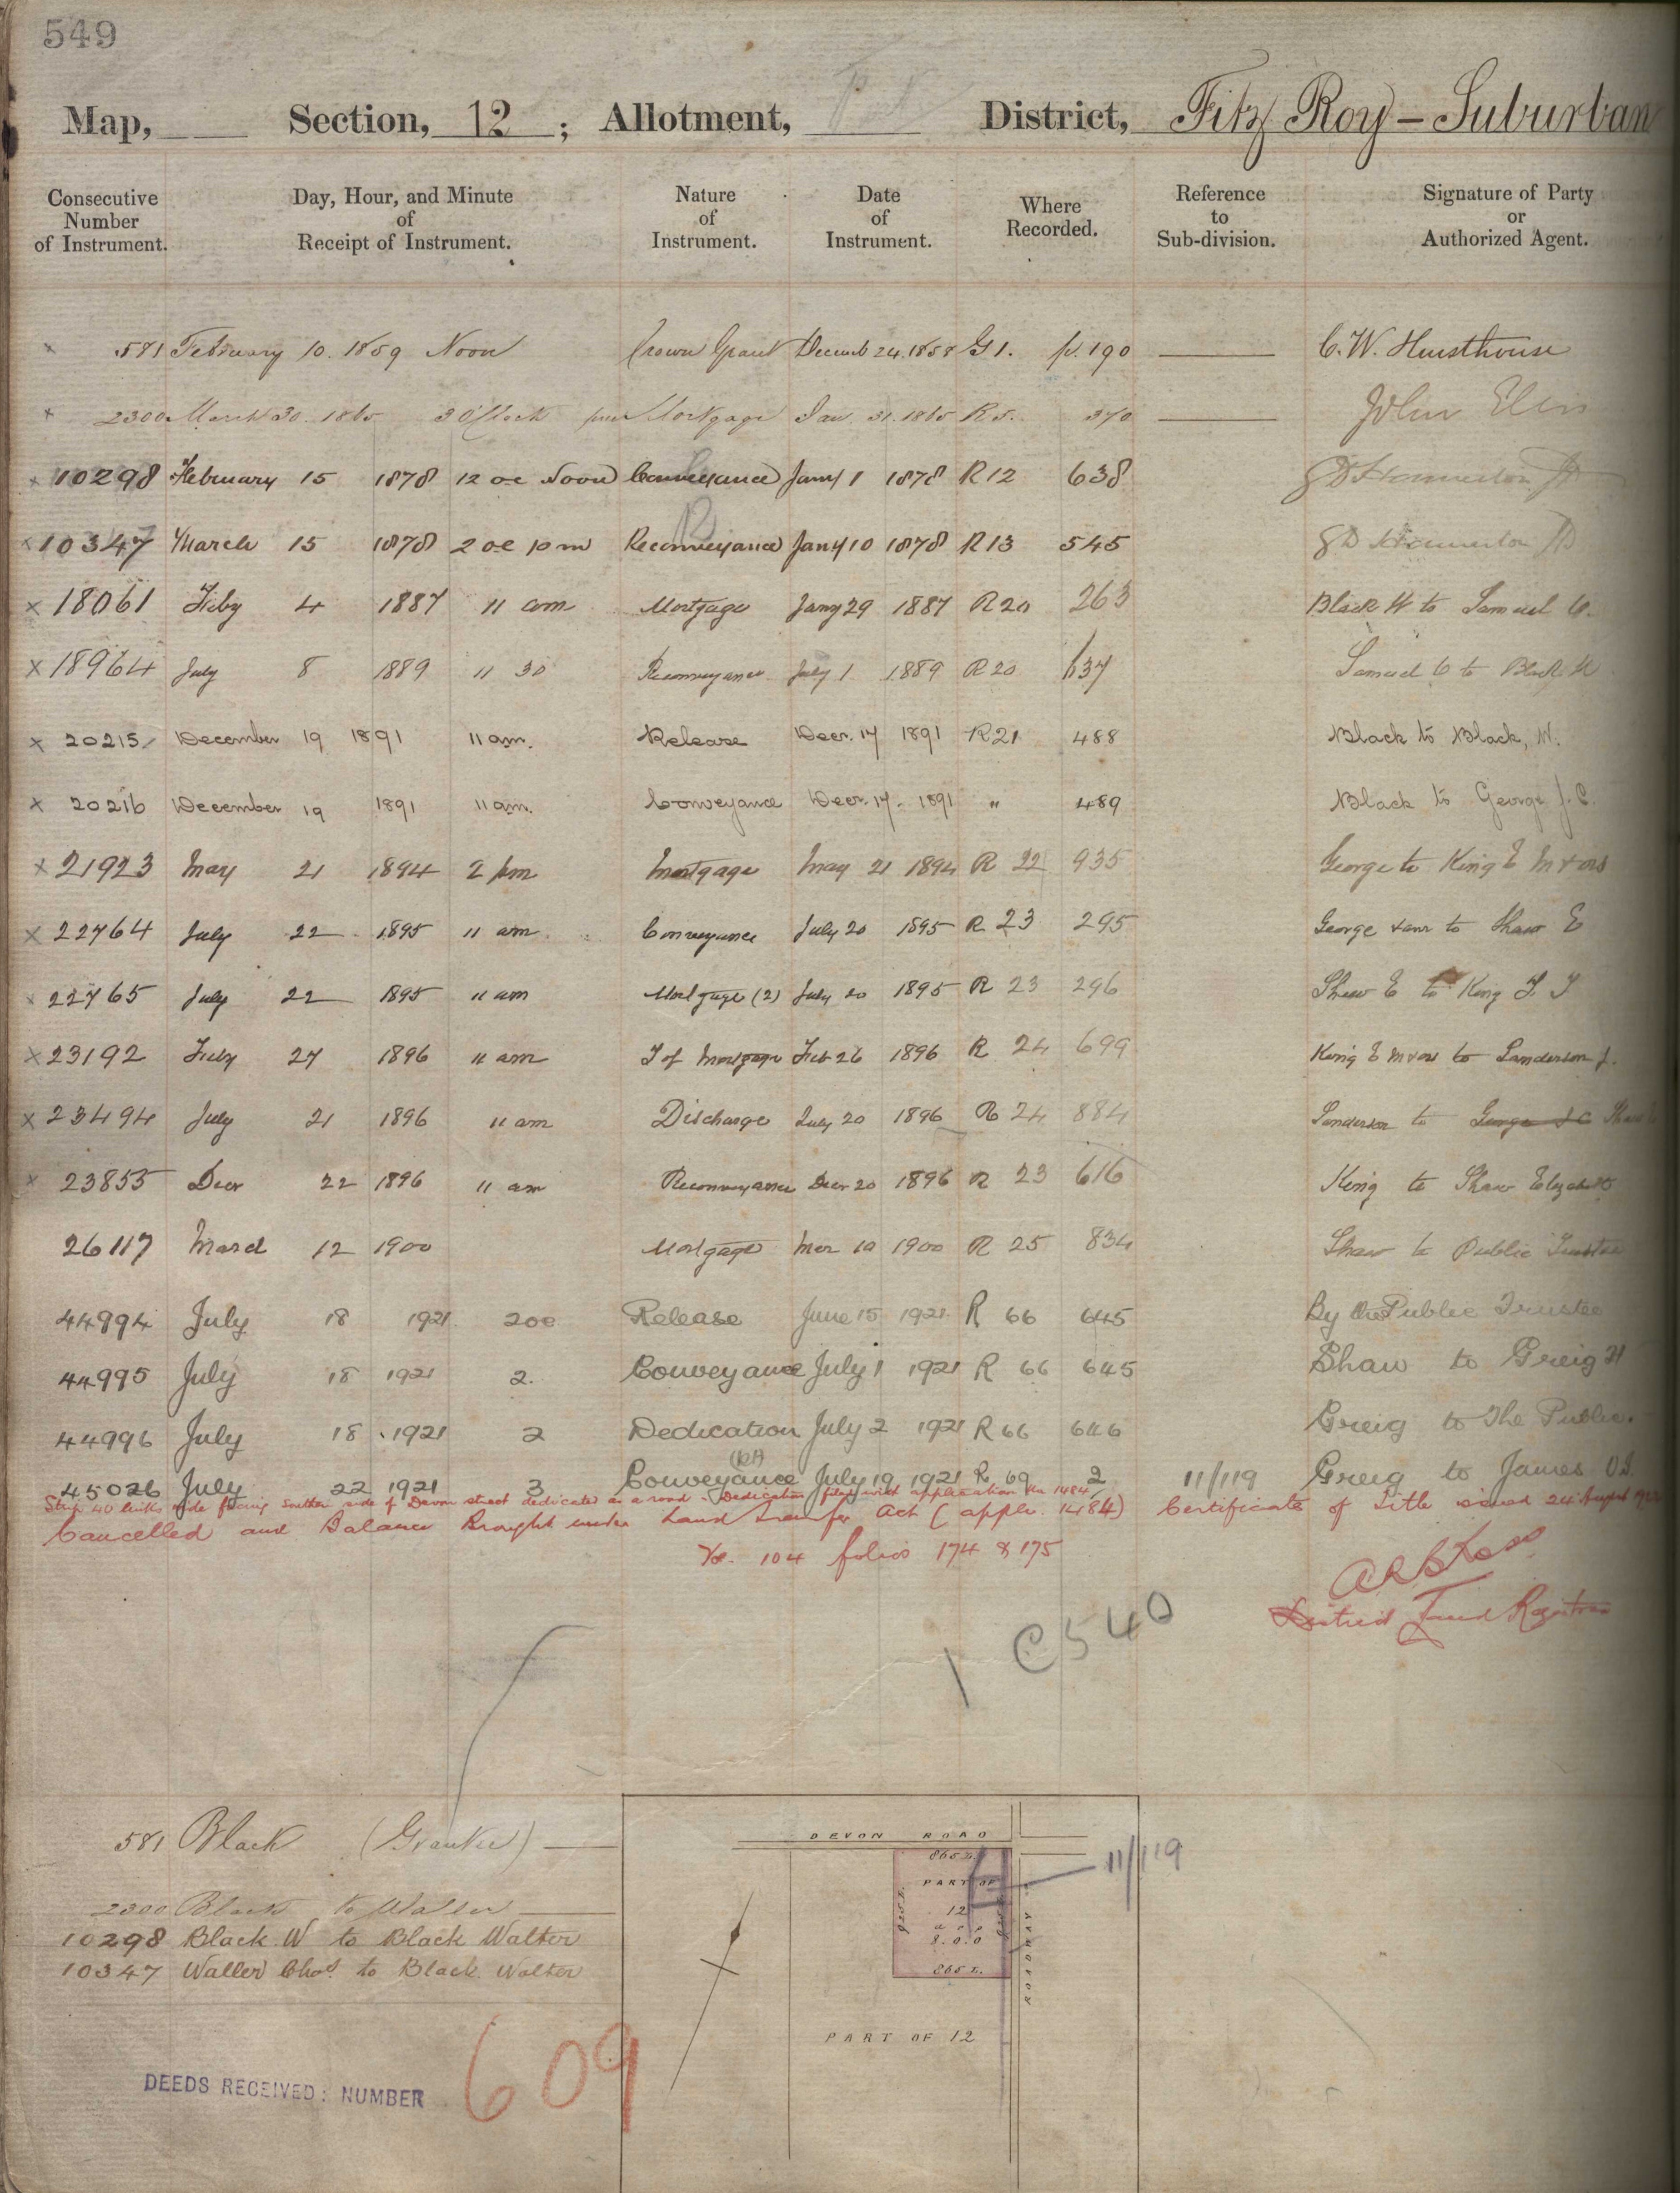 549
Map, Section, 12 ; Allotment, Part District, Fitz Roy - Suburban
Consecutive Number of Instrument. Day, Hour, and Minute of Receipt of Instrument. Nature of Instrument. Date of Instrument. Where Recorded. Reference to Sub-division. Signature of Party or Authorized Agent.
x 581 February 10. 1859 Noon Crown Grant Decemb 24. 1858 G 1. fo. 190 C. W. Hursthouse
x 2300 March 30. 1865 3 O'Clock Mortgage Jan. 31. 1865 R 5. 370 John
x 10298 February 15 1878 12 oc Noon Conveyance Jany 1 1878 R 12 638
x 10347 March 15 1878 2 oc pm Reconveyance Jany 10 1878 R 13 545
x 18061 Feby 4 1887 11 am Mortgage Jany 29 1887 R 20 263 Black W to Samuel O.
x 18964 July 8 1889 11 30 Reconveyance July 1 1889 R 20 637 Samuel O to Black W
x 20215 December 19 1891 11 am. Release Decr. 17 1891 R 21 488 Black to Black, W.
x 20216 December 19 1891 11 am. Conveyance Decr. 17. 1891 " 489 Black to George J. C.
x 21923 May 21 1894 2 pm Mortgage May 21 1894 R 22 935 George to King E M & ors
x 22764 July 22 1895 11 am Conveyance July 20 1895 R 23 295 George & anr to Shaw E
x 22765 July 22 1895 11 am Mortgage (2) July 20 1895 R 23 296 Shaw E to King T J
x 23192 Feby 27 1896 11 am T of Mortgage Feb 26 1896 R 24 699 King E M & ors to Sanderson J.
x 23494 July 21 1896 11 am Discharge July 20 1896 R 24 884 Sanderson to George J C Shaw
x 23855 Decr 22 1896 11 am Reconveyance Decr 20 1896 R 23 616 King to Shaw Elizabeth
26117 March 12 1900 Mortgage Mar 10 1900 R 25 834 Shaw to Public Trustee
44994 July 18 1921 2 oc Release June 15 1921 R 66 645 By the Public Trustee
44995 July 18 1921 2. Conveyance July 1 1921 R 66 645 Shaw to Greig H
44996 July 18 1921 2 Dedication July 2 1921 R 66 646 Greig to The Public.
(pt)
45026 July 22 1921 3 Conveyance July 19 1921 R 69 2 11/119 Greig to James O.
Strip 40 links wide facing southern side of Devon street dedicated as a road - Dedication filed with application No 1484
Cancelled and Balance Brought under Land Transfer Act (appln. 1484) Certificate of Title issued 24 August
Vol. 104 folios 174 & 175
District Land Registrar
C 540
581 Black (Grantee)
2300 Black to Waller
10298 Black W to Black Walter
10347 Waller Chas. to Black Walter
DEEDS RECEIVED: NUMBER 609
DEVON ROAD
865 L.
11/119
PART OF
12
925 L.
925 L.
a r p
8.0.0
865 L.
ROADWAY
PART OF 12